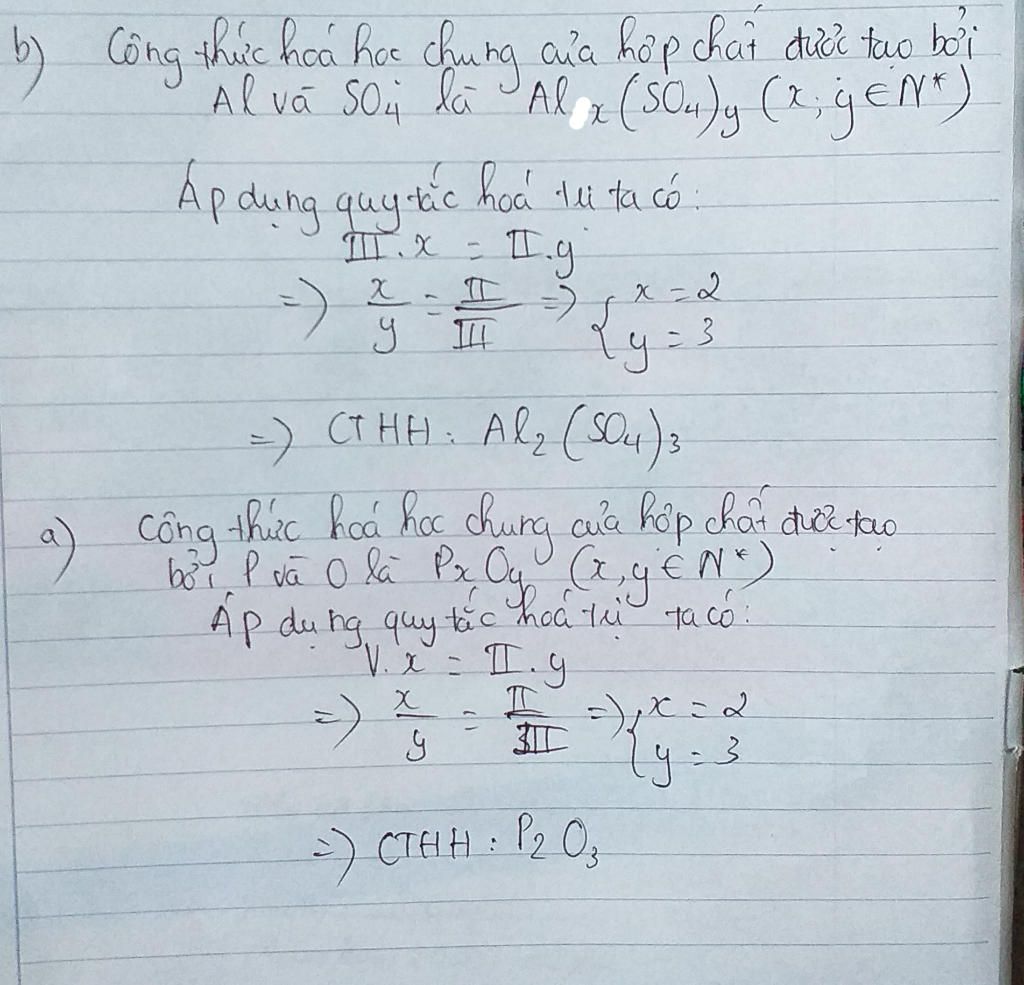 b) Công thức hoá học chung của hợp chất được tạo bởi
Al và SO4 là Alx(SO4)y (x; y ∈ N*)
Áp dụng quy tắc hoá trị ta có:
III.x = II.y
=> x/y = II/III => { x = 2
y = 3
=> CTHH: Al2(SO4)3
a) Công thức hoá học chung của hợp chất được tạo
bởi P và O là PxOy (x, y ∈ N*)
Áp dụng quy tắc hoá trị ta có:
V.x = II.y
=> x/y = II/III => { x = 2
y = 3
=> CTHH: P2O3